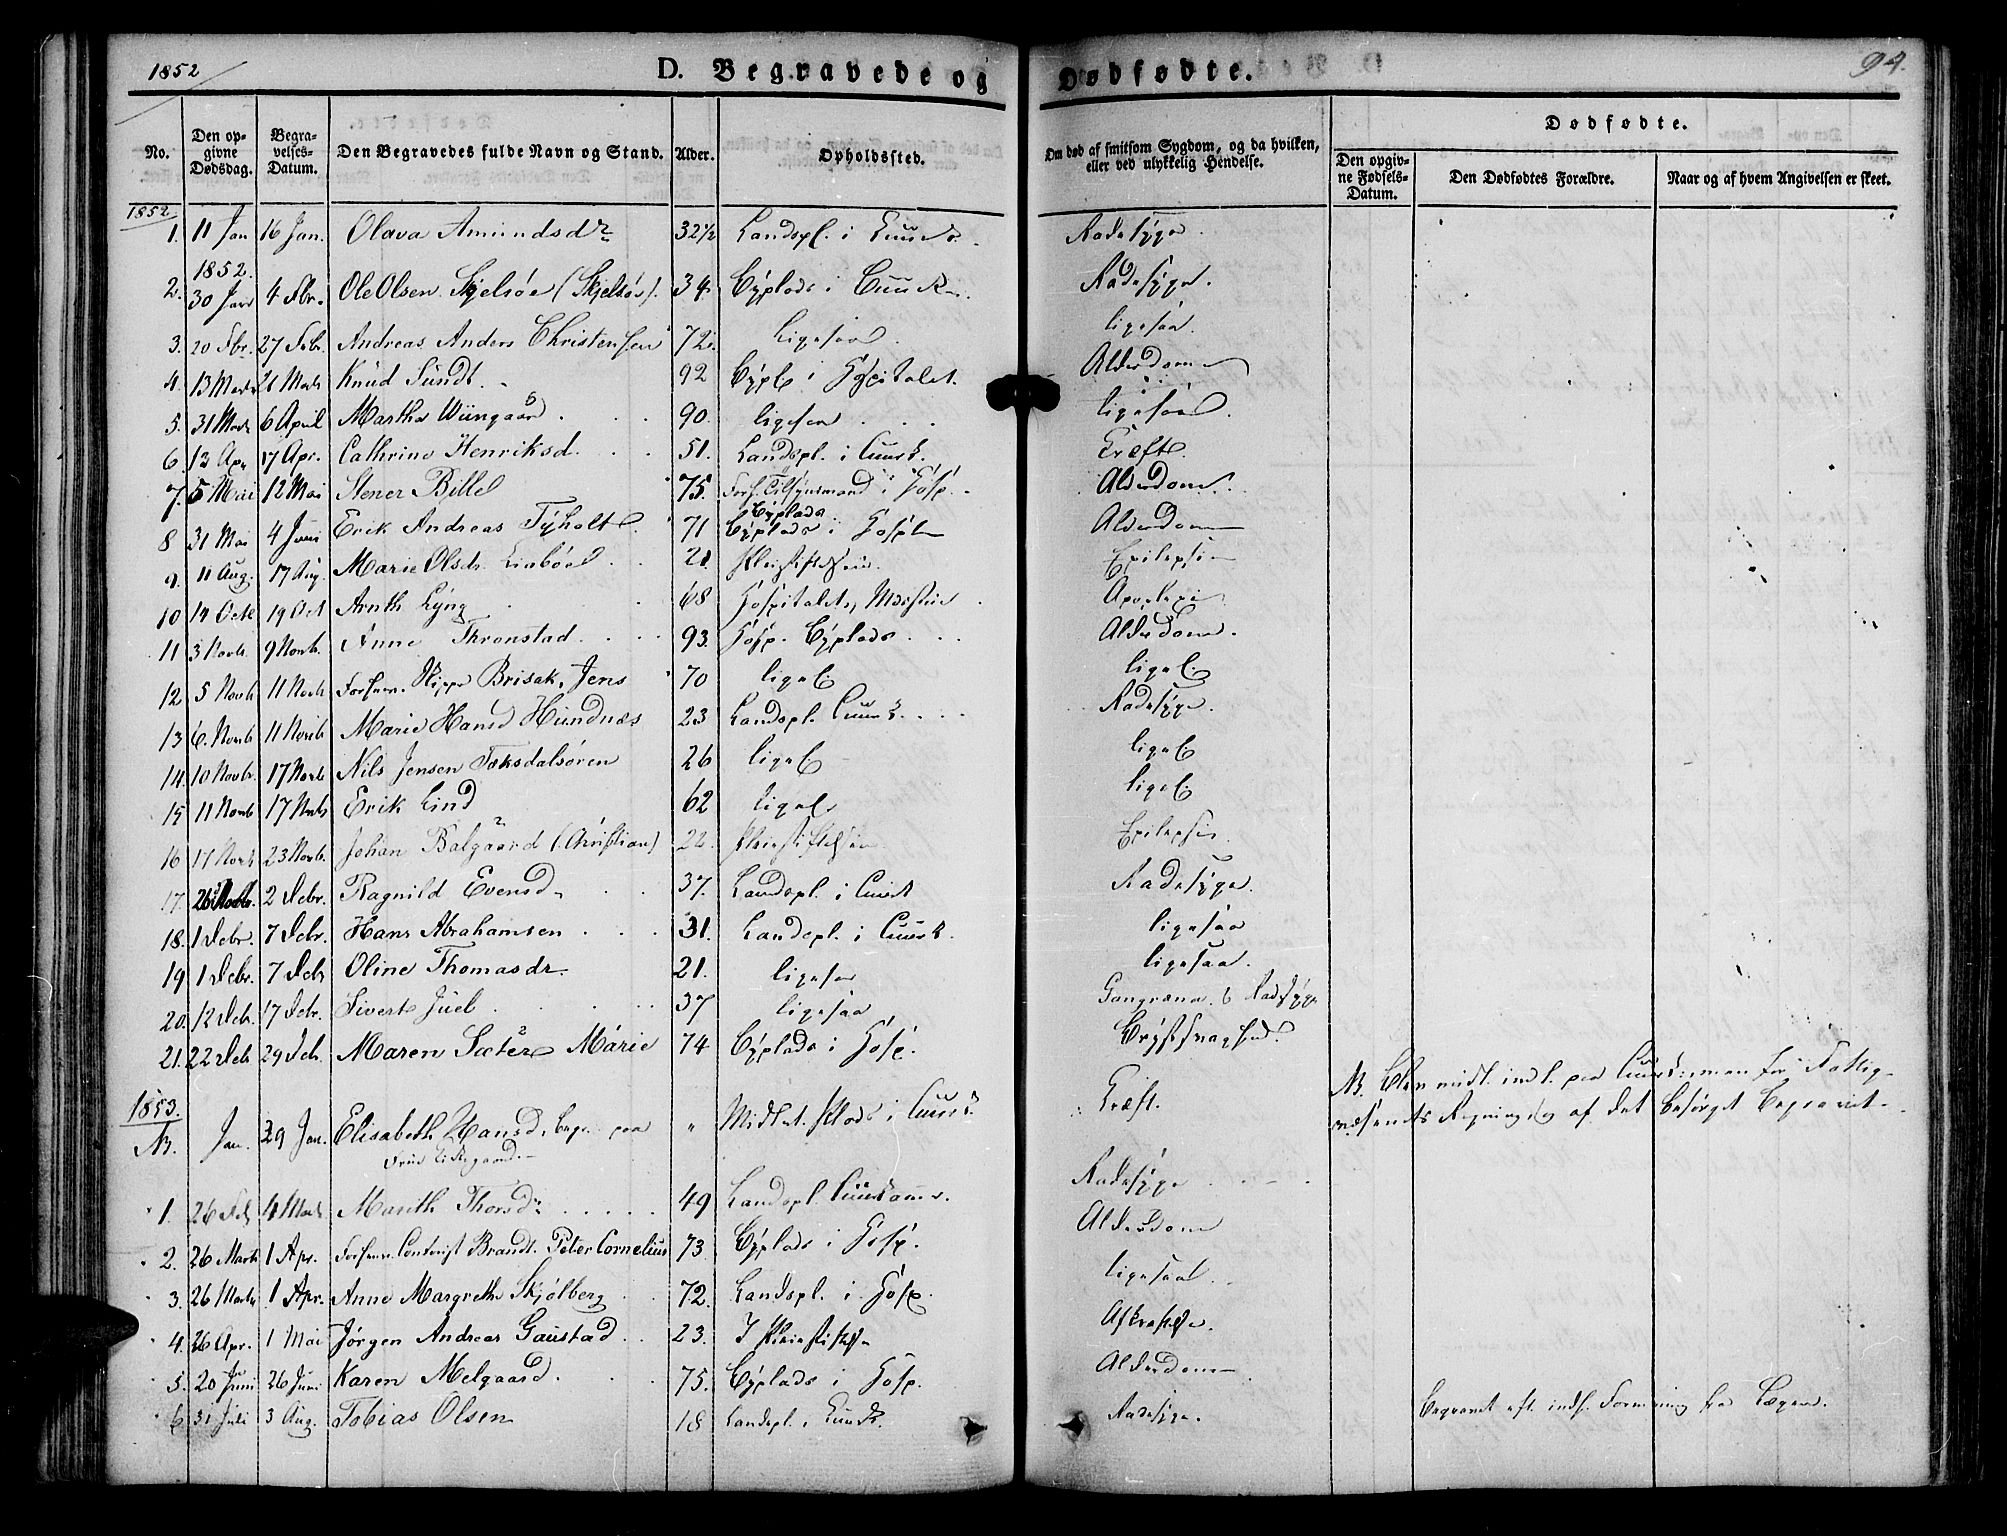 1852
D. Begravede og Dødfødte.
94.
No.
Den opgivne Dødsdag.
Begravelses-Datum.
Den Begravedes fulde Navn og Stand.
Alder.
Opholdssted.
Om død af smitsom Sygdom, og da hvilken, eller ved ulykkelig Hendelse.
Dødfødte.
Den opgivne Fødsels-Datum.
Den Dødfødtes Forældre.
Naar og af hvem Angivelsen er skeet.
1852
1. 11 Jan 16 Jan. Olava Amundsdr 32 1/2 Landspl. i Radesyge.
1852.
2. 30 Janr 4 Fbr. Ole Olsen Skjelsøe (Skjelsør). 34 Byplads i Radesyge.
3. 20 Fbr. 27 Febr. Andreas Anders Christensen 72. ligesaa. ligesaa.
4. 13 Marts 26 Marts Knud Sundt. 92 Bypl. i Hospitalet. Alderdom
5. 31 Marts 6 April Martha Wiingaard. 90. ligesaa ligesaa.
6. 12 Apr 17 Apr. Cathrine Henriksd. 51. Landspl. i Cuurh. Kræft.
7. 5 Mai 12 Mai Stener Bille 75. Forh. Tilsynsmand i Hosp. Alderdom.
8 31 Mai 4 Juni Erik Andreas Tyholt. 71 Byplads i Hospit. Alderdom
9. 11 Aug. 17 Aug. Marie Olsdr. 21. Epilepsie
10 14 Octb 19 Oct Arnth Lyng 68 Hospitalets Apoplexi
11 3 Novb. 9 Novb. Anne Thronstad. 93. Hosp. Byplads Alderdom.
12 5 Novb 11 Novb Brisak, Jens 70 ligel. ligel.
13 6. Novb 11 Novb Marie Hansd Hundnæs 23 Landspl. Cuurh. Radesyge.
14. 10 Novbr. 17 Novb Nils Jensen Foksdalsøren 26 ligel. ligel.
15 11 Novb 17 Novb Erik Lind 62 ligel. ligel.
16 17 Novb 23 Novb. Johan Balgaard (Christian) 22. Epilepsie
17. 26 Novbr. 2 Debr. Ragnild Evensd. 37. Landspl. i Cuurh Radesyge.
18. 1 Debr. 7 Debr. Hans Abrahamsen 31. Landspl. i Cuurh. ligesaa
19 1 Debr. 7 Deb Oline Thomasdr 21. ligesaa ligesaa.
20. 12 Deb. 17 Debr. Sivert Juel 37 ligesaa Gangræna. & Radesyge
21. 22 Deb 29 Deb. Maren Sæter Marie 74 Byplads i Hosp. Brystsvaghed.
1853.
NB. Jan. 29 Jan. Elisabeth Hansd. " Midlert. Plads i Cuurh Kræft.
NB. Blev midl. indl. paa for Fattigvæsenets Regning, og af det besørget begravet.
1. 26 Feb 4 Marts Marith Thorsdr 49 Landspl. Radesyge
2. 26 Marts 1 Apr. Brandt. Peter Cornelius 73 Byplads i Hosp. Alderdom
3. 26 Marts 1 Apr. Anne Margrethe Skjølberg 72. Landspl. i Hosp. ligesaa
4. 26 Apr. 1 Mai Jørgen Andreas Gaustad. 23. I Afkræftelse.
5. 20 Juni 26 Juni Karen Melgaard. 75. Byplads i Hosp. Alderdom
6 31 Juli 3 Aug. Tobias Olsen 18 Landspl. i Radesyge. Begravet eft. indh. fra Lægen.